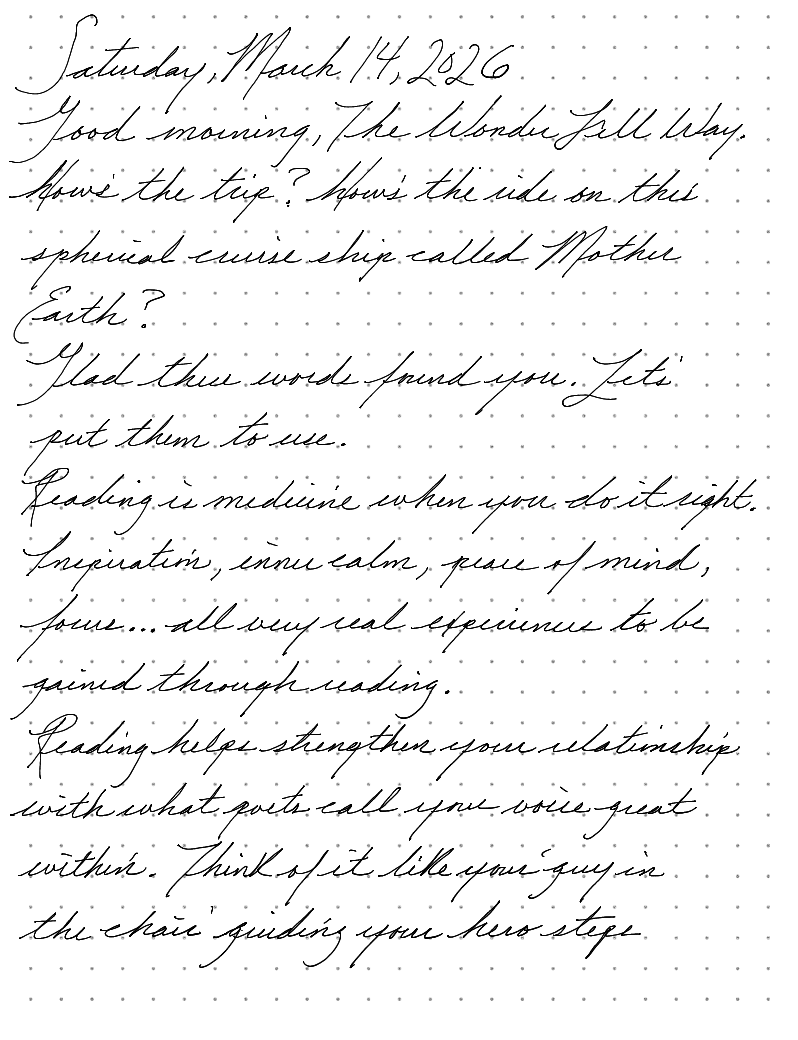 Saturday, March 14, 2026
Good morning, The Wonder Jill Way.
How's the trip? How's the ride on this
spherical cruise ship called Mother
Earth?
Glad these words found you. Let's
put them to use.
Reading is medicine when you do it right.
Inspiration, inner calm, peace of mind,
focus... all very real experiences to be
gained through reading.
Reading helps strengthen your relationship
with what poets call your voice great
within. Think of it like your 'guy in
the chair' guiding your hero steps